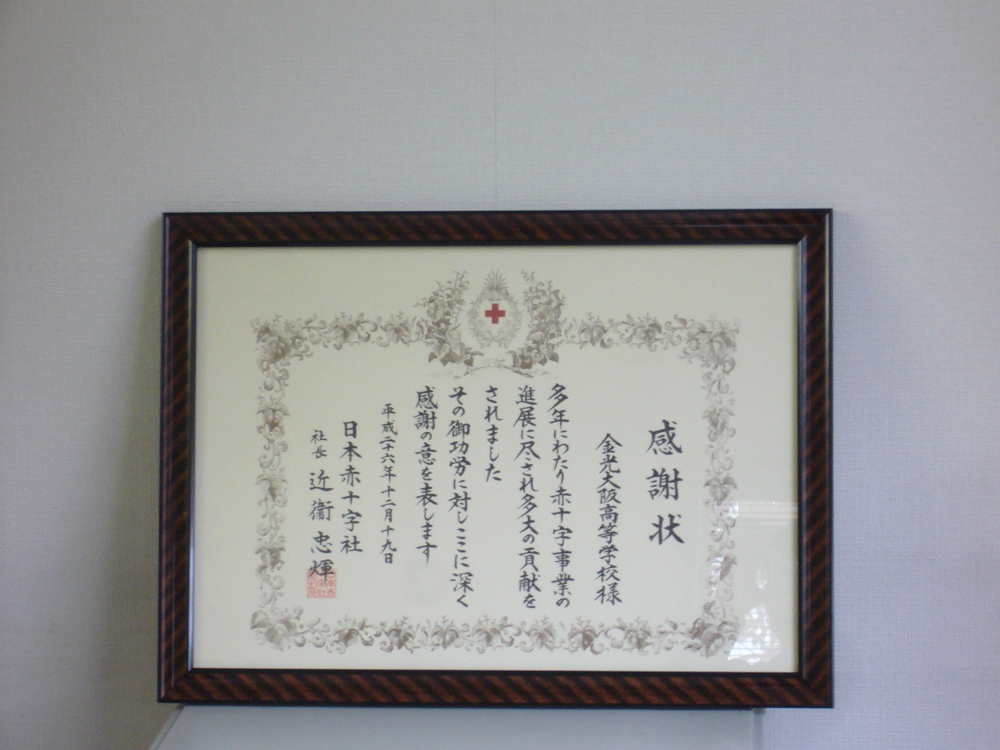 感謝状
金光大阪高等学校様
多年にわたり赤十字事業の
進展に尽され多大の貢献を
されました
その御功労に対しここに深く
感謝の意を表します
平成二十六年十二月十九日
日本赤十字社
社長 近衞忠煇